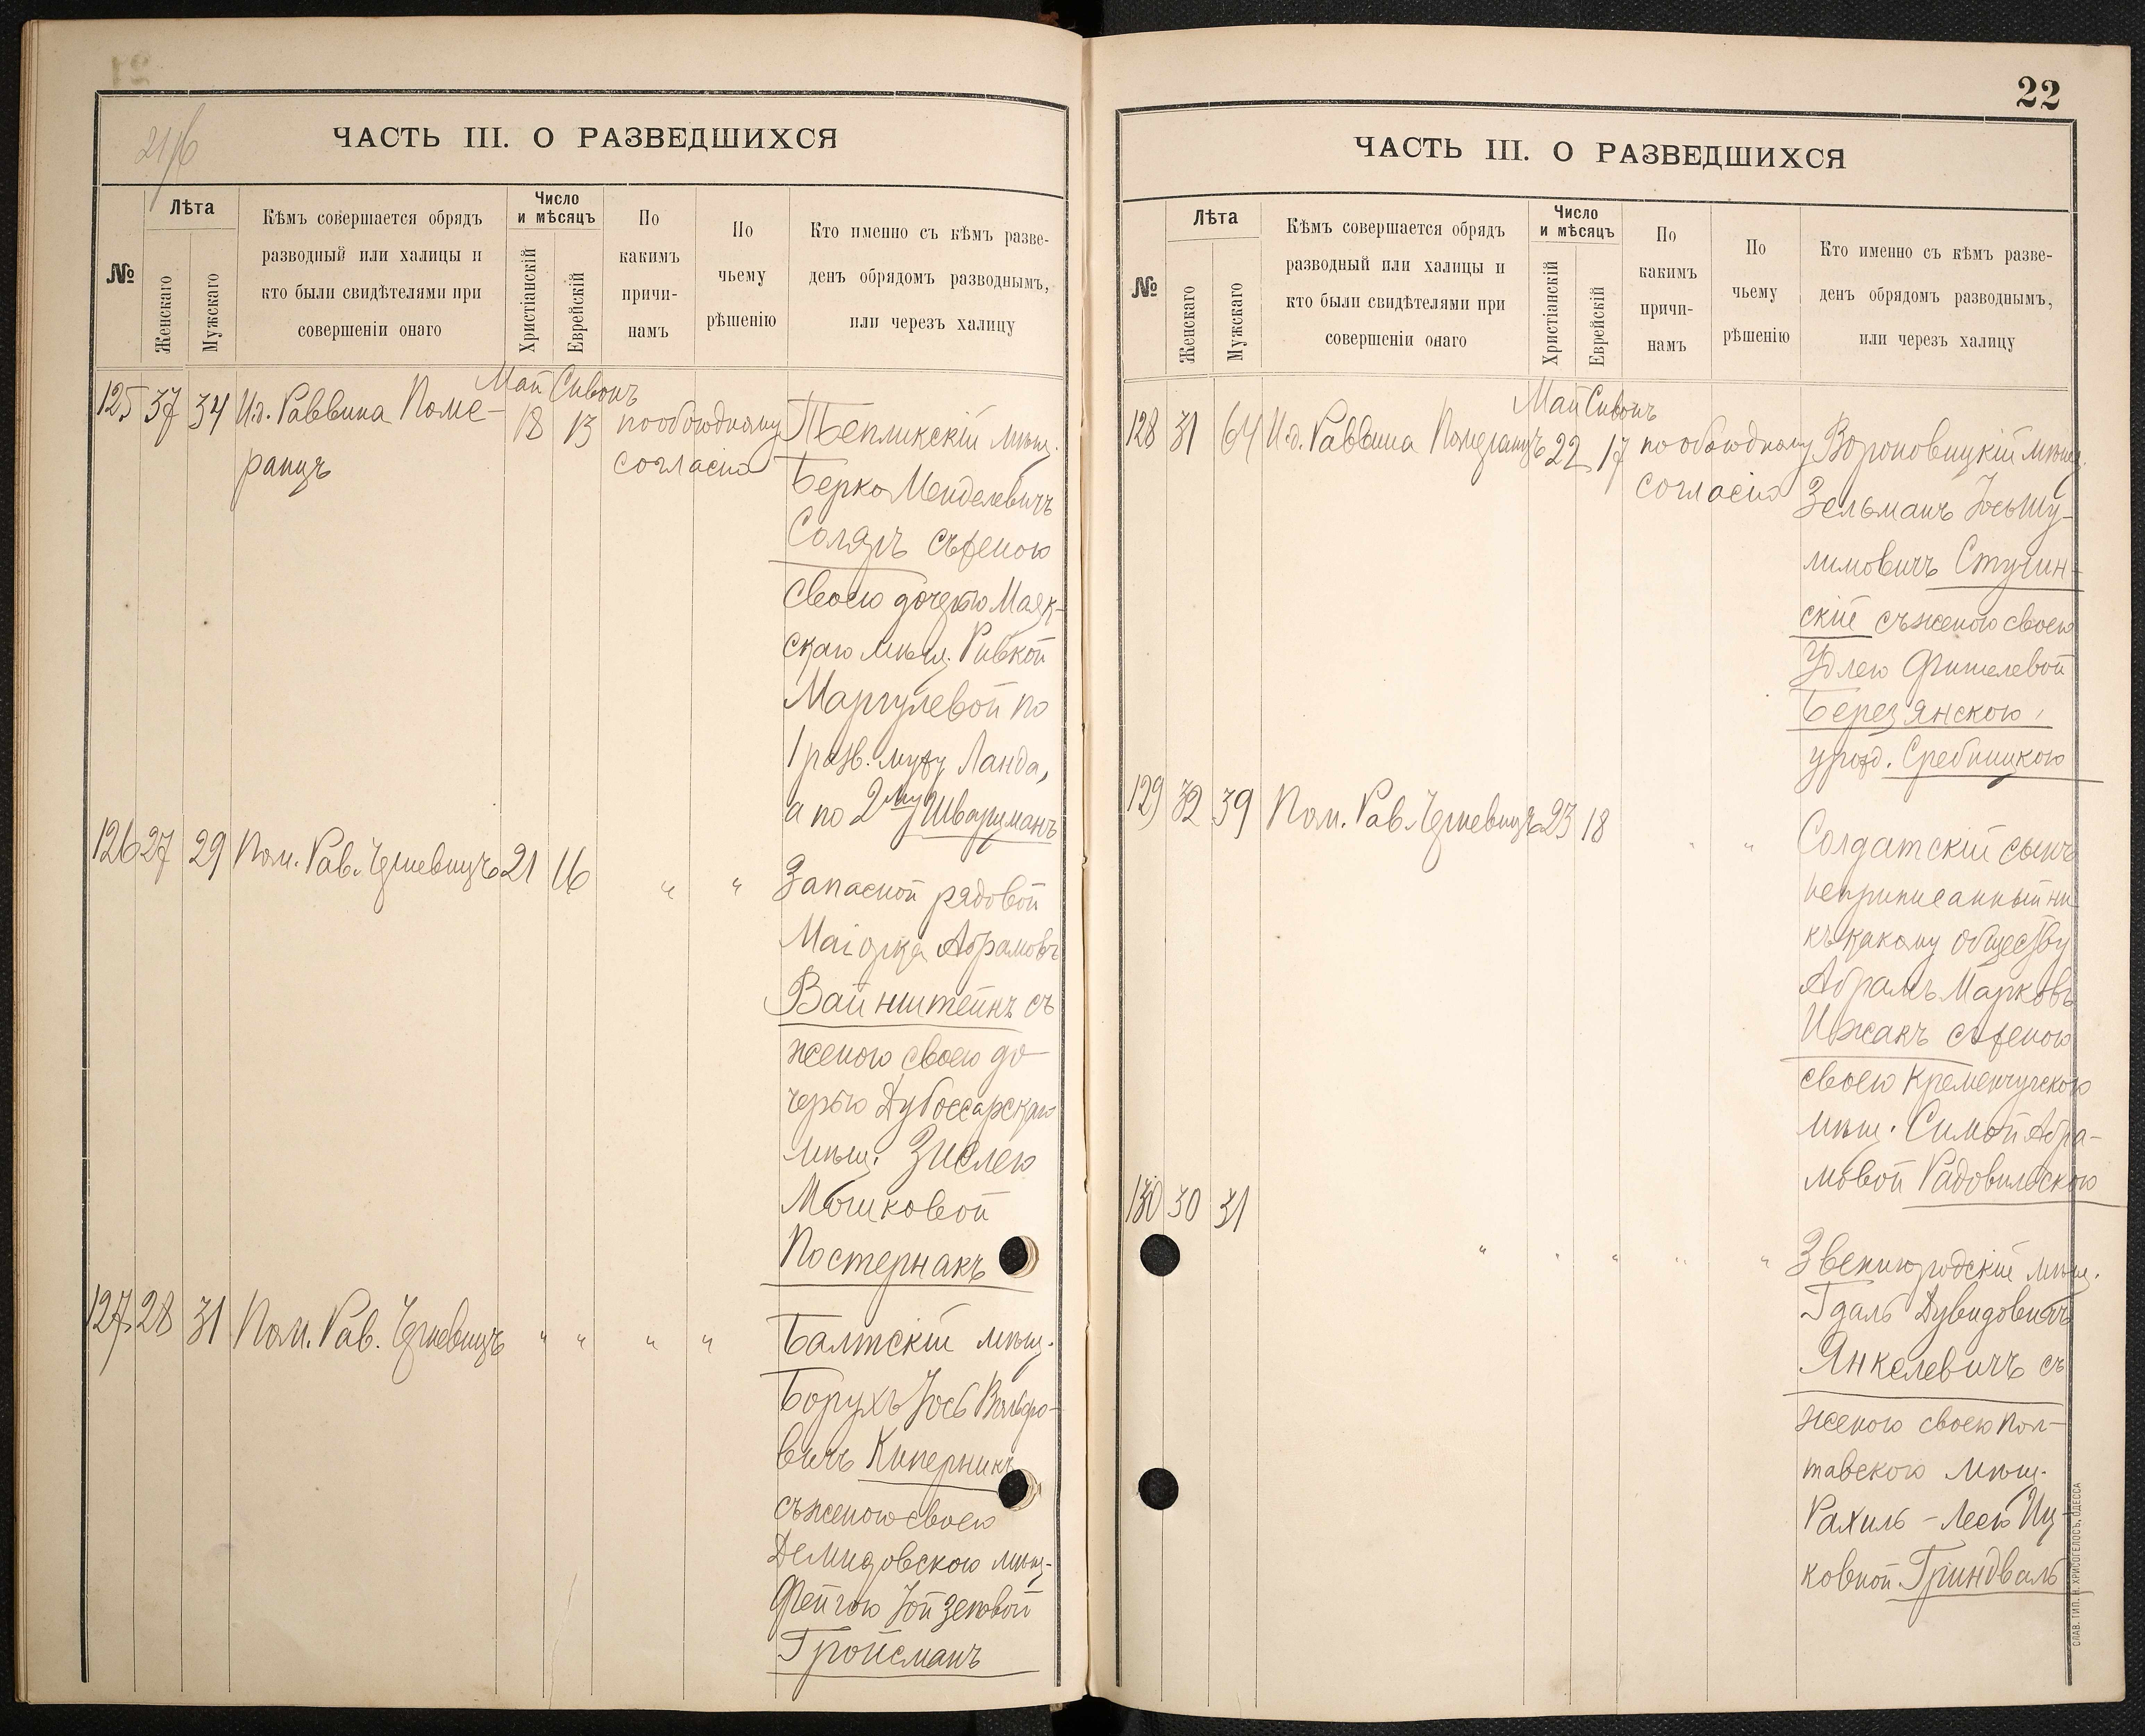 21/6
ЧАСТЬ III. О РАЗВЕДШИХСЯ
№
Лѣта
Женскаго
Мужскаго
Кѣмъ совершается обрядъ
разводный или халицы и
кто были свидѣтелями при
совершеніи онаго
Число
и мѣсяцъ
Христіанскій
Еврейскій
По
какимъ
причи-
намъ
По
чьему
рѣшенію
Кто именно съ кѣмъ разве-
денъ обрядомъ разводнымъ,
или черезъ халицу
Май Сивонъ
125 37 34 И.д. Раввина Поме- 18 13 по обоюдному Тепликскій мѣщ.
ранцъ согласію
Берко Менделевичъ
Соляръ съ женою
своею дочерью Маяк-
скаго мѣщ. Ривкой
Маргулевой по
1 разв. мужу Ланда,
а по 2му Шварцманъ
126 27 29 Пом. Рав. Черневицъ 21 16 " " Запасной рядовой
Маіорка Абрамовъ
Вайнштейнъ съ
женою своею до-
черью Дубоссарскаго
мѣщ. Зислею
Мошковой
Постернакъ
127 28 31 Пом. Рав. Черневицъ " " " " Балтскій мѣщ.
Борухъ Іось Вольфо-
вичъ Киперникъ
съ женою своею
Демидовскою мѣщ.
Фейгою Іойзеповой
Гройсманъ
22
ЧАСТЬ III. О РАЗВЕДШИХСЯ
№
Лѣта
Женскаго
Мужскаго
Кѣмъ совершается обрядъ
разводный или халицы и
кто были свидѣтелями при
совершеніи онаго
Число
и мѣсяцъ
Христіанскій
Еврейскій
По
какимъ
причи-
намъ
По
чьему
рѣшенію
Кто именно съ кѣмъ разве-
денъ обрядомъ разводнымъ,
или черезъ халицу
Май Сивонъ
128 31 64 И.д. Раввина Померанцъ 22 17 по обоюдному Вороновицкій мѣщ.
согласію Зельманъ Іось Шу-
лимовичъ Стучин-
скій съ женою своею
Удлею Фишелевой
Березянскою,
урожд. Сребницкою
129 32 39 Пом. Рав. Черневицъ 23 18 " " Солдатскій сынъ
неприписанный ни
къ какому обществу
Абрамъ Марковъ
Ижакъ съ женою
своею Кременчугскою
мѣщ. Симой Абра-
мовой Радовильскою
130 30 31 " " " " " Звенигородскій мѣщ.
Гдаль Дувидовичъ
Янкелевичъ съ
женою своею Пол-
тавскою мѣщ.
Рахиль-Леею Иц-
ковной Гриндваль
СЛАВ. ТИП. Н. ХРИСОГЕЛОСЪ, ОДЕССА